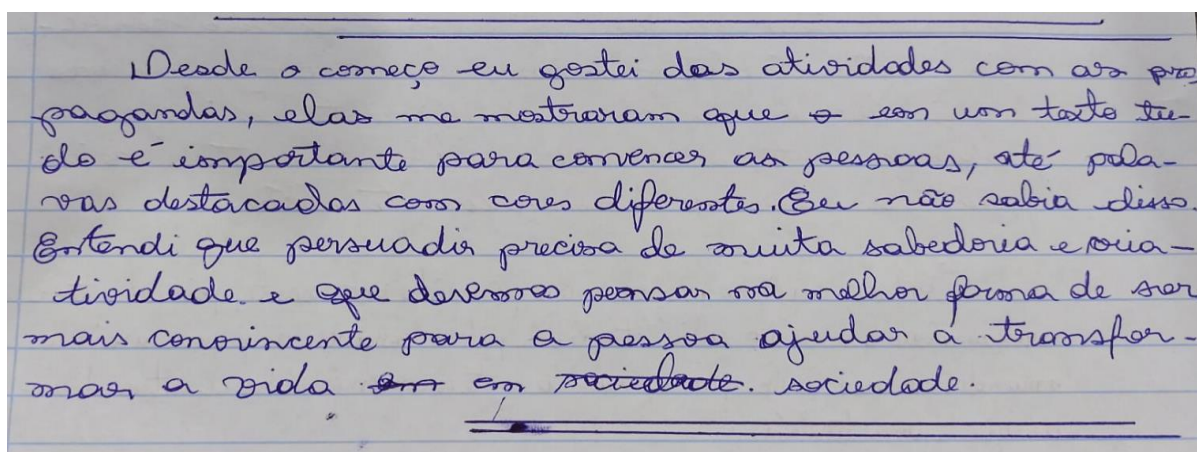 Desde o começo eu gostei das atividades com as pro
pagandas, elas me mostraram que o em um texto tu-
do é importante para convencer as pessoas, até pala-
vas destacadas com cores diferentes. Eu não sabia disso.
Entendi que persuadir precisa de muita sabedoria e cria-
tividade e que devemos pensar na melhor forma de ser
mais convincente para a pessoa ajudar a transfor-
mar a vida em em sociedade. sociedade.